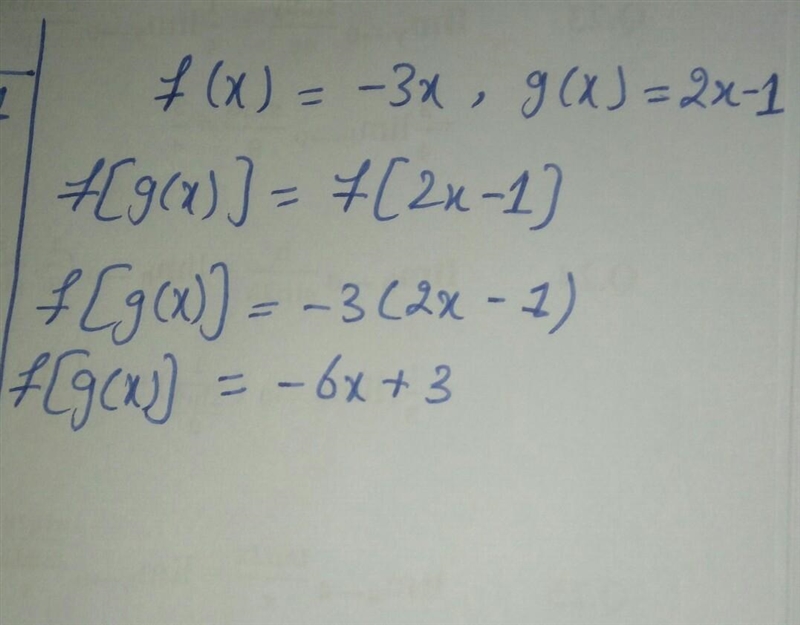 f(x) = -3x , g(x) = 2x-1
f[g(x)] = f[2x-1]
f[g(x)] = -3(2x - 1)
f[g(x)] = -6x + 3